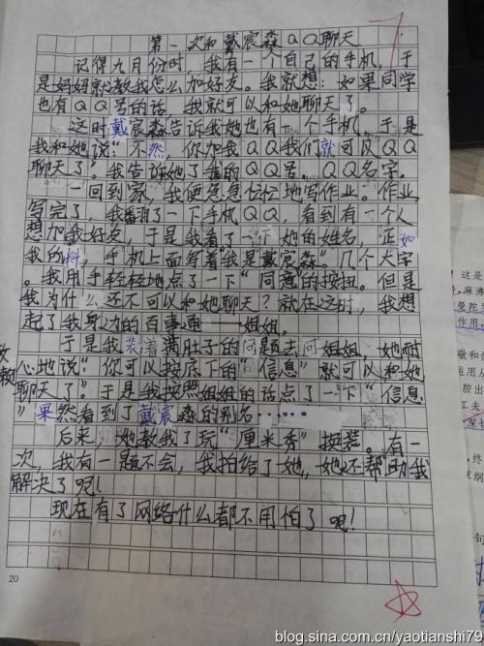 第一次和戴宸森QQ聊天
记得九月份时，我有一个自己的手机，于
是妈妈就教我怎么加好友。我就想：如果同学
也有QQ号的话，我就可以和她聊天了。
这时戴宸森告诉我她也有一个手机，于是
我和她说“不然，你加我QQ我们就可以QQ
聊天了。我告诉她了我的QQ号，QQ名字。
一回到家，我便急急忙忙地写作业。作业
写完了，我翻了一下手机QQ，看到有一个人
想加我好友，于是我看了一下她的姓名，正如
我的料，手机上面写着我是戴宸森”几个大字
。我用手轻轻地点了一下“同意”的按扭。但是
我为什么还不可以和她聊天？就在这时，我想
起了我身边的百事通——姐姐。
于是我装着满肚子的问题去问姐姐，她耐
心地说：“你可以按底下的“信息”就可以和她
聊天了。”于是我按照姐姐的话点了一下“信息
”果然看到了戴宸森的别名……
后来，她教我了玩“厘米秀”按荒。有一
次，我有一题不会，我拍给了她，她还帮助我
解决了呢！
现在有了网络什么都不用怕了呢！
20
blog.sina.com.cn/yaotianshi79